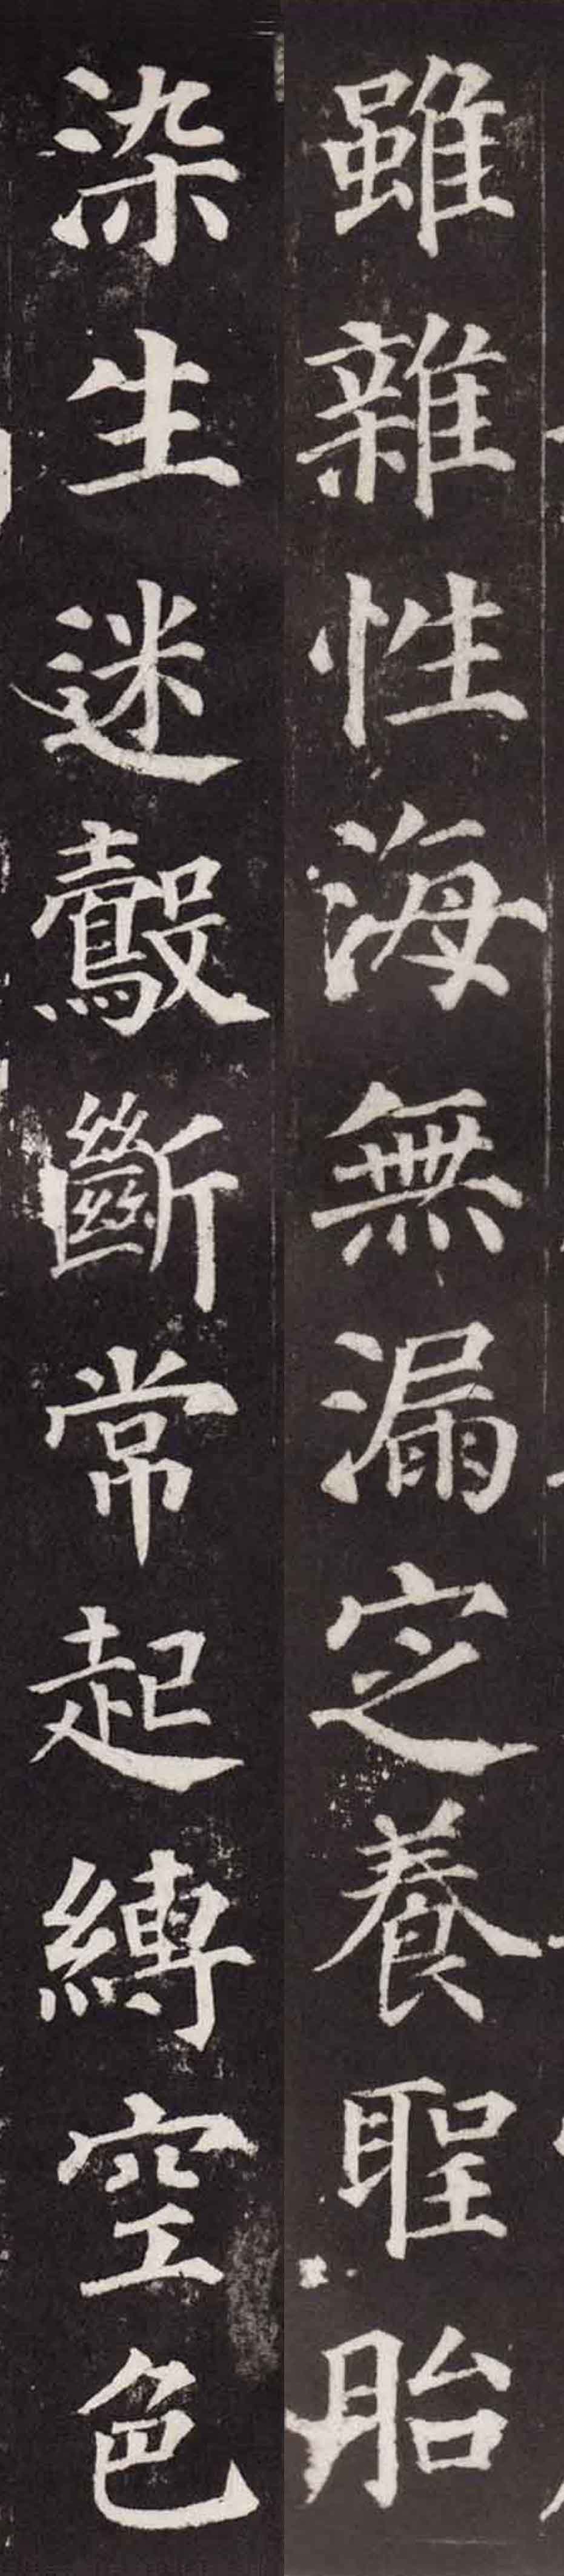 雖雜性海無漏定養聖胎
染生迷鷇斷常起縛空色